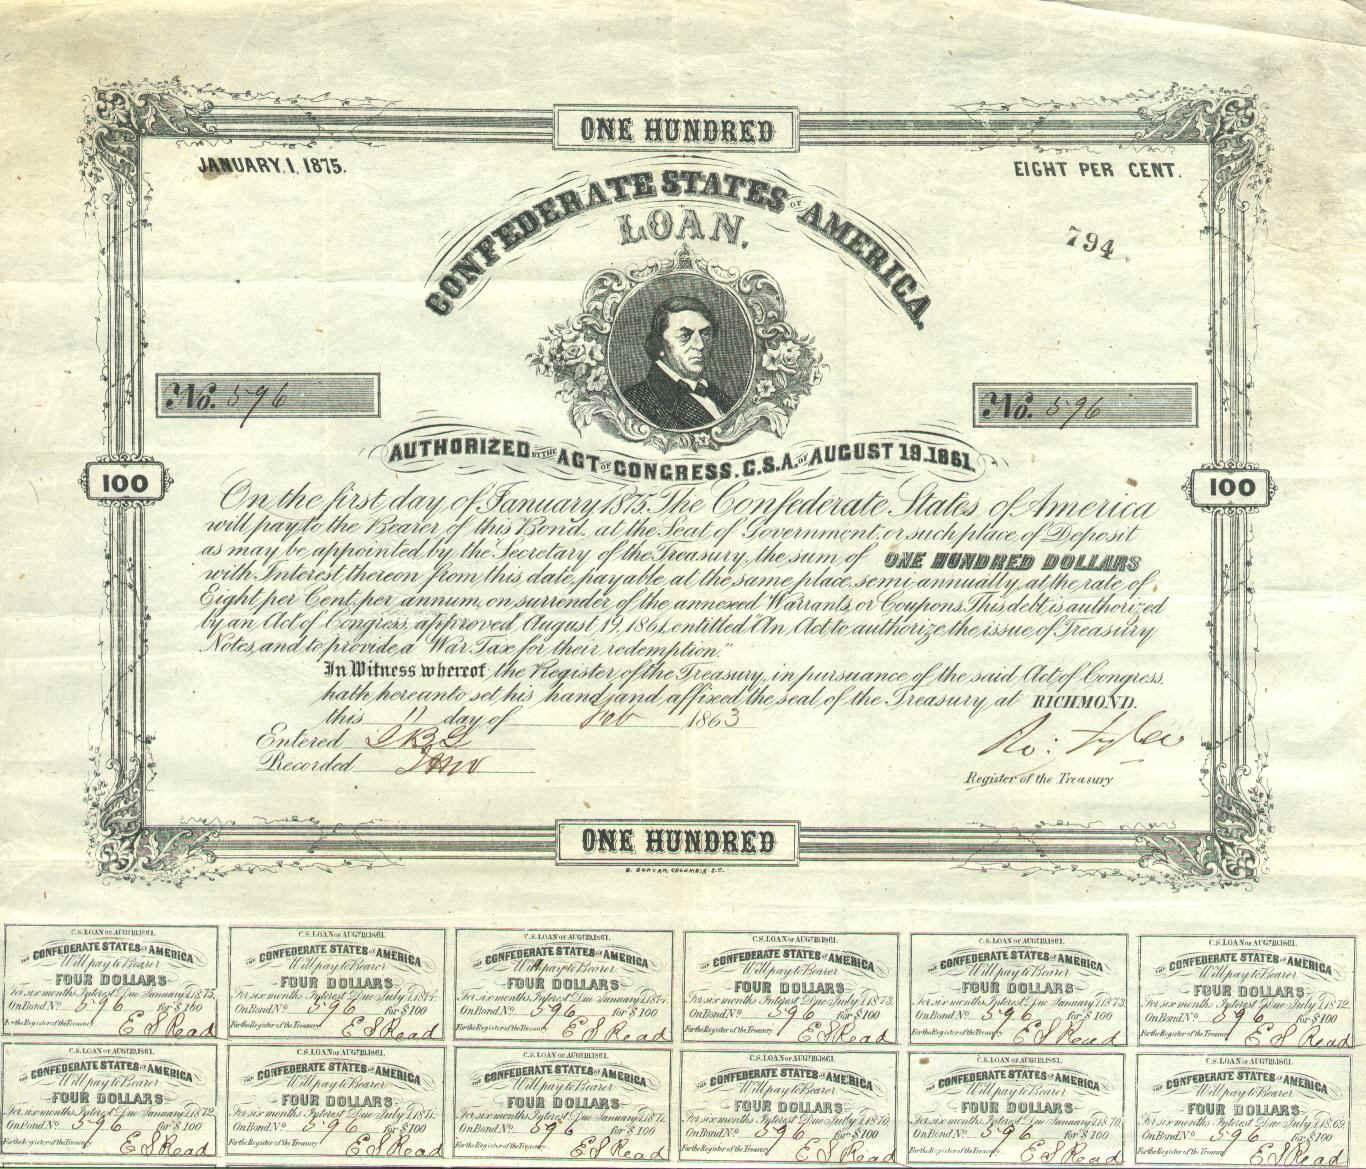 ONE HUNDRED
JANUARY. 1, 1875.
EIGHT PER CENT.
CONFEDERATE STATES OF AMERICA.
LOAN.
794
No. 596
No. 596
AUTHORIZED BY THE ACT OF CONGRESS. C.S.A. OF AUGUST 19. 1861.
100
100
On the first day of January 1875. The Confederate States of America
will pay to the Bearer of this Bond, at the Seat of Government, or such place of Deposit
as may be appointed by the Secretary of the Treasury, the sum of ONE HUNDRED DOLLARS
with Interest thereon from this date, payable at the same place, semi-annually, at the rate of
Eight per Cent. per annum, on surrender of the annexed Warrants, or Coupons. This debt is authorized
by an Act of Congress, approved August 19, 1861, entitled "An Act to authorize the issue of Treasury
Notes, and to provide a War Tax for their redemption."
In Witness whereof, the Register of the Treasury, in pursuance of the said Act of Congress,
hath hereunto set his hand, and affixed the seal of the Treasury at RICHMOND.
this 11 day of Feb 1863
Entered
Recorded
Ro: Tyler
Register of the Treasury
ONE HUNDRED
B. DUNCAN, COLUMBIA S.C.
C.S. LOAN OF AUG. 19. 1861.
THE CONFEDERATE STATES OF AMERICA
Will pay to Bearer
FOUR DOLLARS
For six months Interest Due January 1, 1875.
On Bond No. 596 for $100
For the Register of the Treasury E S Read
C.S. LOAN OF AUG. 19. 1861.
THE CONFEDERATE STATES OF AMERICA
Will pay to Bearer
FOUR DOLLARS
For six months Interest Due July 1, 1874.
On Bond No. 596 for $100
For the Register of the Treasury E S Read
C.S. LOAN OF AUG. 19. 1861.
THE CONFEDERATE STATES OF AMERICA
Will pay to Bearer
FOUR DOLLARS
For six months Interest Due January 1, 1874.
On Bond No. 596 for $100
For the Register of the Treasury E S Read
C.S. LOAN OF AUG. 19. 1861.
THE CONFEDERATE STATES OF AMERICA
Will pay to Bearer
FOUR DOLLARS
For six months Interest Due July 1, 1873.
On Bond No. 596 for $100
For the Register of the Treasury E S Read
C.S. LOAN OF AUG. 19. 1861.
THE CONFEDERATE STATES OF AMERICA
Will pay to Bearer
FOUR DOLLARS
For six months Interest Due January 1, 1873.
On Bond No. 596 for $100
For the Register of the Treasury E S Read
C.S. LOAN OF AUG. 19. 1861.
THE CONFEDERATE STATES OF AMERICA
Will pay to Bearer
FOUR DOLLARS
For six months Interest Due July 1, 1872.
On Bond No. 596 for $100
For the Register of the Treasury E S Read
C.S. LOAN OF AUG. 19. 1861.
THE CONFEDERATE STATES OF AMERICA
Will pay to Bearer
FOUR DOLLARS
For six months Interest Due January 1, 1872.
On Bond No. 596 for $100
For the Register of the Treasury E S Read
C.S. LOAN OF AUG. 19. 1861.
THE CONFEDERATE STATES OF AMERICA
Will pay to Bearer
FOUR DOLLARS
For six months Interest Due July 1, 1871.
On Bond No. 596 for $100
For the Register of the Treasury E S Read
C.S. LOAN OF AUG. 19. 1861.
THE CONFEDERATE STATES OF AMERICA
Will pay to Bearer
FOUR DOLLARS
For six months Interest Due January 1, 1871.
On Bond No. 596 for $100
For the Register of the Treasury E S Read
C.S. LOAN OF AUG. 19. 1861.
THE CONFEDERATE STATES OF AMERICA
Will pay to Bearer
FOUR DOLLARS
For six months Interest Due July 1, 1870.
On Bond No. 596 for $100
For the Register of the Treasury E S Read
C.S. LOAN OF AUG. 19. 1861.
THE CONFEDERATE STATES OF AMERICA
Will pay to Bearer
FOUR DOLLARS
For six months Interest Due January 1, 1870.
On Bond No. 596 for $100
For the Register of the Treasury E S Read
C.S. LOAN OF AUG. 19. 1861.
THE CONFEDERATE STATES OF AMERICA
Will pay to Bearer
FOUR DOLLARS
For six months Interest Due July 1, 1869.
On Bond No. 596 for $100
For the Register of the Treasury E S Read